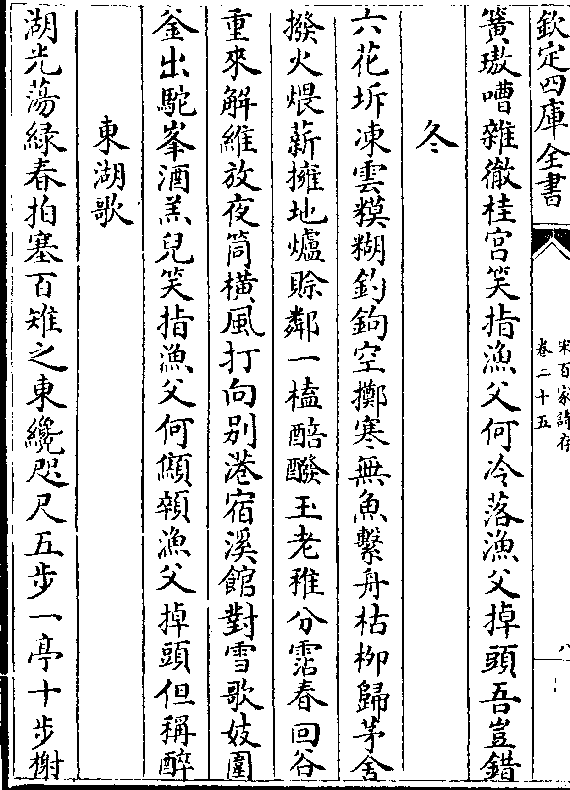 欽定四庫全書
宋百家詩存
卷二十五
八
簧璈嘈雜徹桂宫笑指漁父何冷落漁父掉頭吾豈錯
冬
六花坼凍雲糢糊釣鉤空擲寒無魚繫舟枯栁歸茅舍
撥火煨薪擁地爐賒鄰一榼醅醱玉老稚分霑春回谷
重來解維放夜筒橫風打向别港宿溪館對雪歌妓圍
釜出駝峯酒羔兒笑指漁父何顦顇漁父掉頭但稱醉
東湖歌
湖光蕩緑春拍塞百雉之東纔咫尺五步一亭十步榭